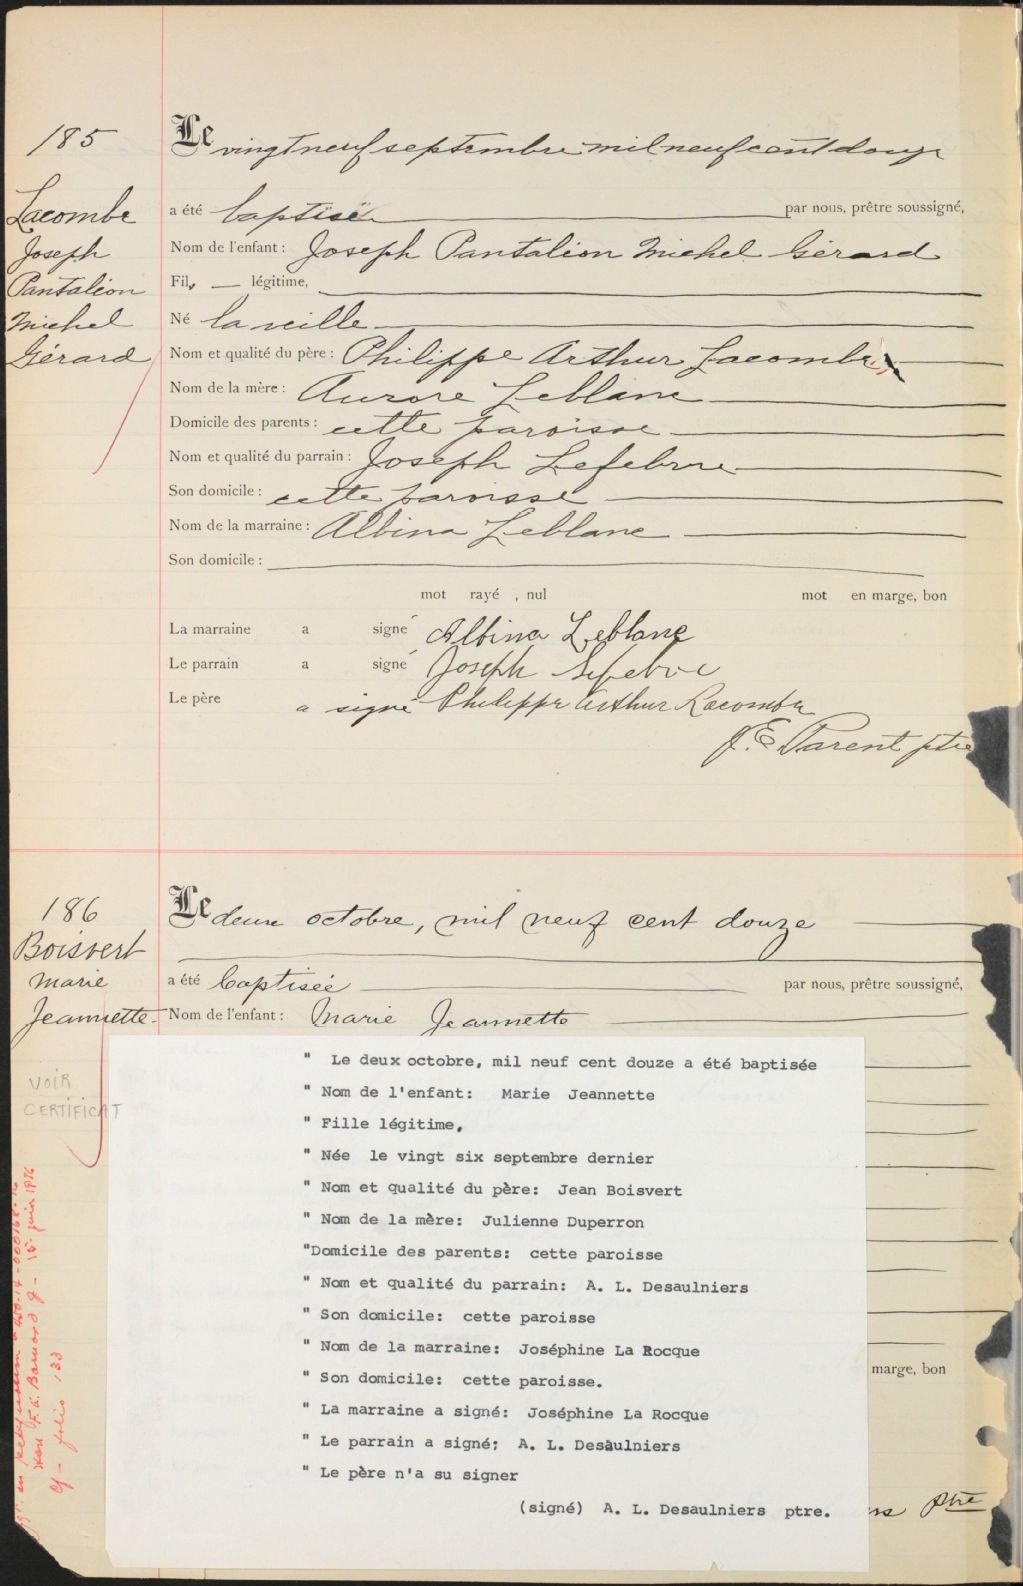 185
Le vingt neuf septembre mil neuf cent douze
Lacombe
Joseph
Pantaléon
Michel
Gérard
a été baptisé par nous, prêtre soussigné,
Nom de l'enfant : Joseph Pantaléon Michel Gérard
Fils légitime,
Né la veille
Nom et qualité du père : Philippe Arthur Lacombe
Nom de la mère : Aurore Leblanc
Domicile des parents : cette paroisse
Nom et qualité du parrain : Joseph Lefebvre
Son domicile : cette paroisse
Nom de la marraine : Albina Leblanc
Son domicile :
mot rayé , nul mot en marge, bon
La marraine a signé Albina Leblanc
Le parrain a signé Joseph Lefebvre
Le père a signé Philippe Arthur Lacombe
J. E. Parent ptre
186
Le deux octobre, mil neuf cent douze
Boisvert
Marie
Jeannette
a été baptisée par nous, prêtre soussigné,
Nom de l'enfant : Marie Jeannette
VOIR
CERTIFICAT
" Le deux octobre, mil neuf cent douze a été baptisée
" Nom de l'enfant: Marie Jeannette
" Fille légitime,
" Née le vingt six septembre dernier
" Nom et qualité du père: Jean Boisvert
" Nom de la mère: Julienne Duperron
"Domicile des parents: cette paroisse
" Nom et qualité du parrain: A. L. Desaulniers
" Son domicile: cette paroisse
" Nom de la marraine: Joséphine La Rocque
" Son domicile: cette paroisse.
" La marraine a signé: Joséphine La Rocque
" Le parrain a signé: A. L. Desaulniers
" Le père n'a su signer
(signé) A. L. Desaulniers ptre.
marge, bon
ptre
15 juin 1976
folio 133